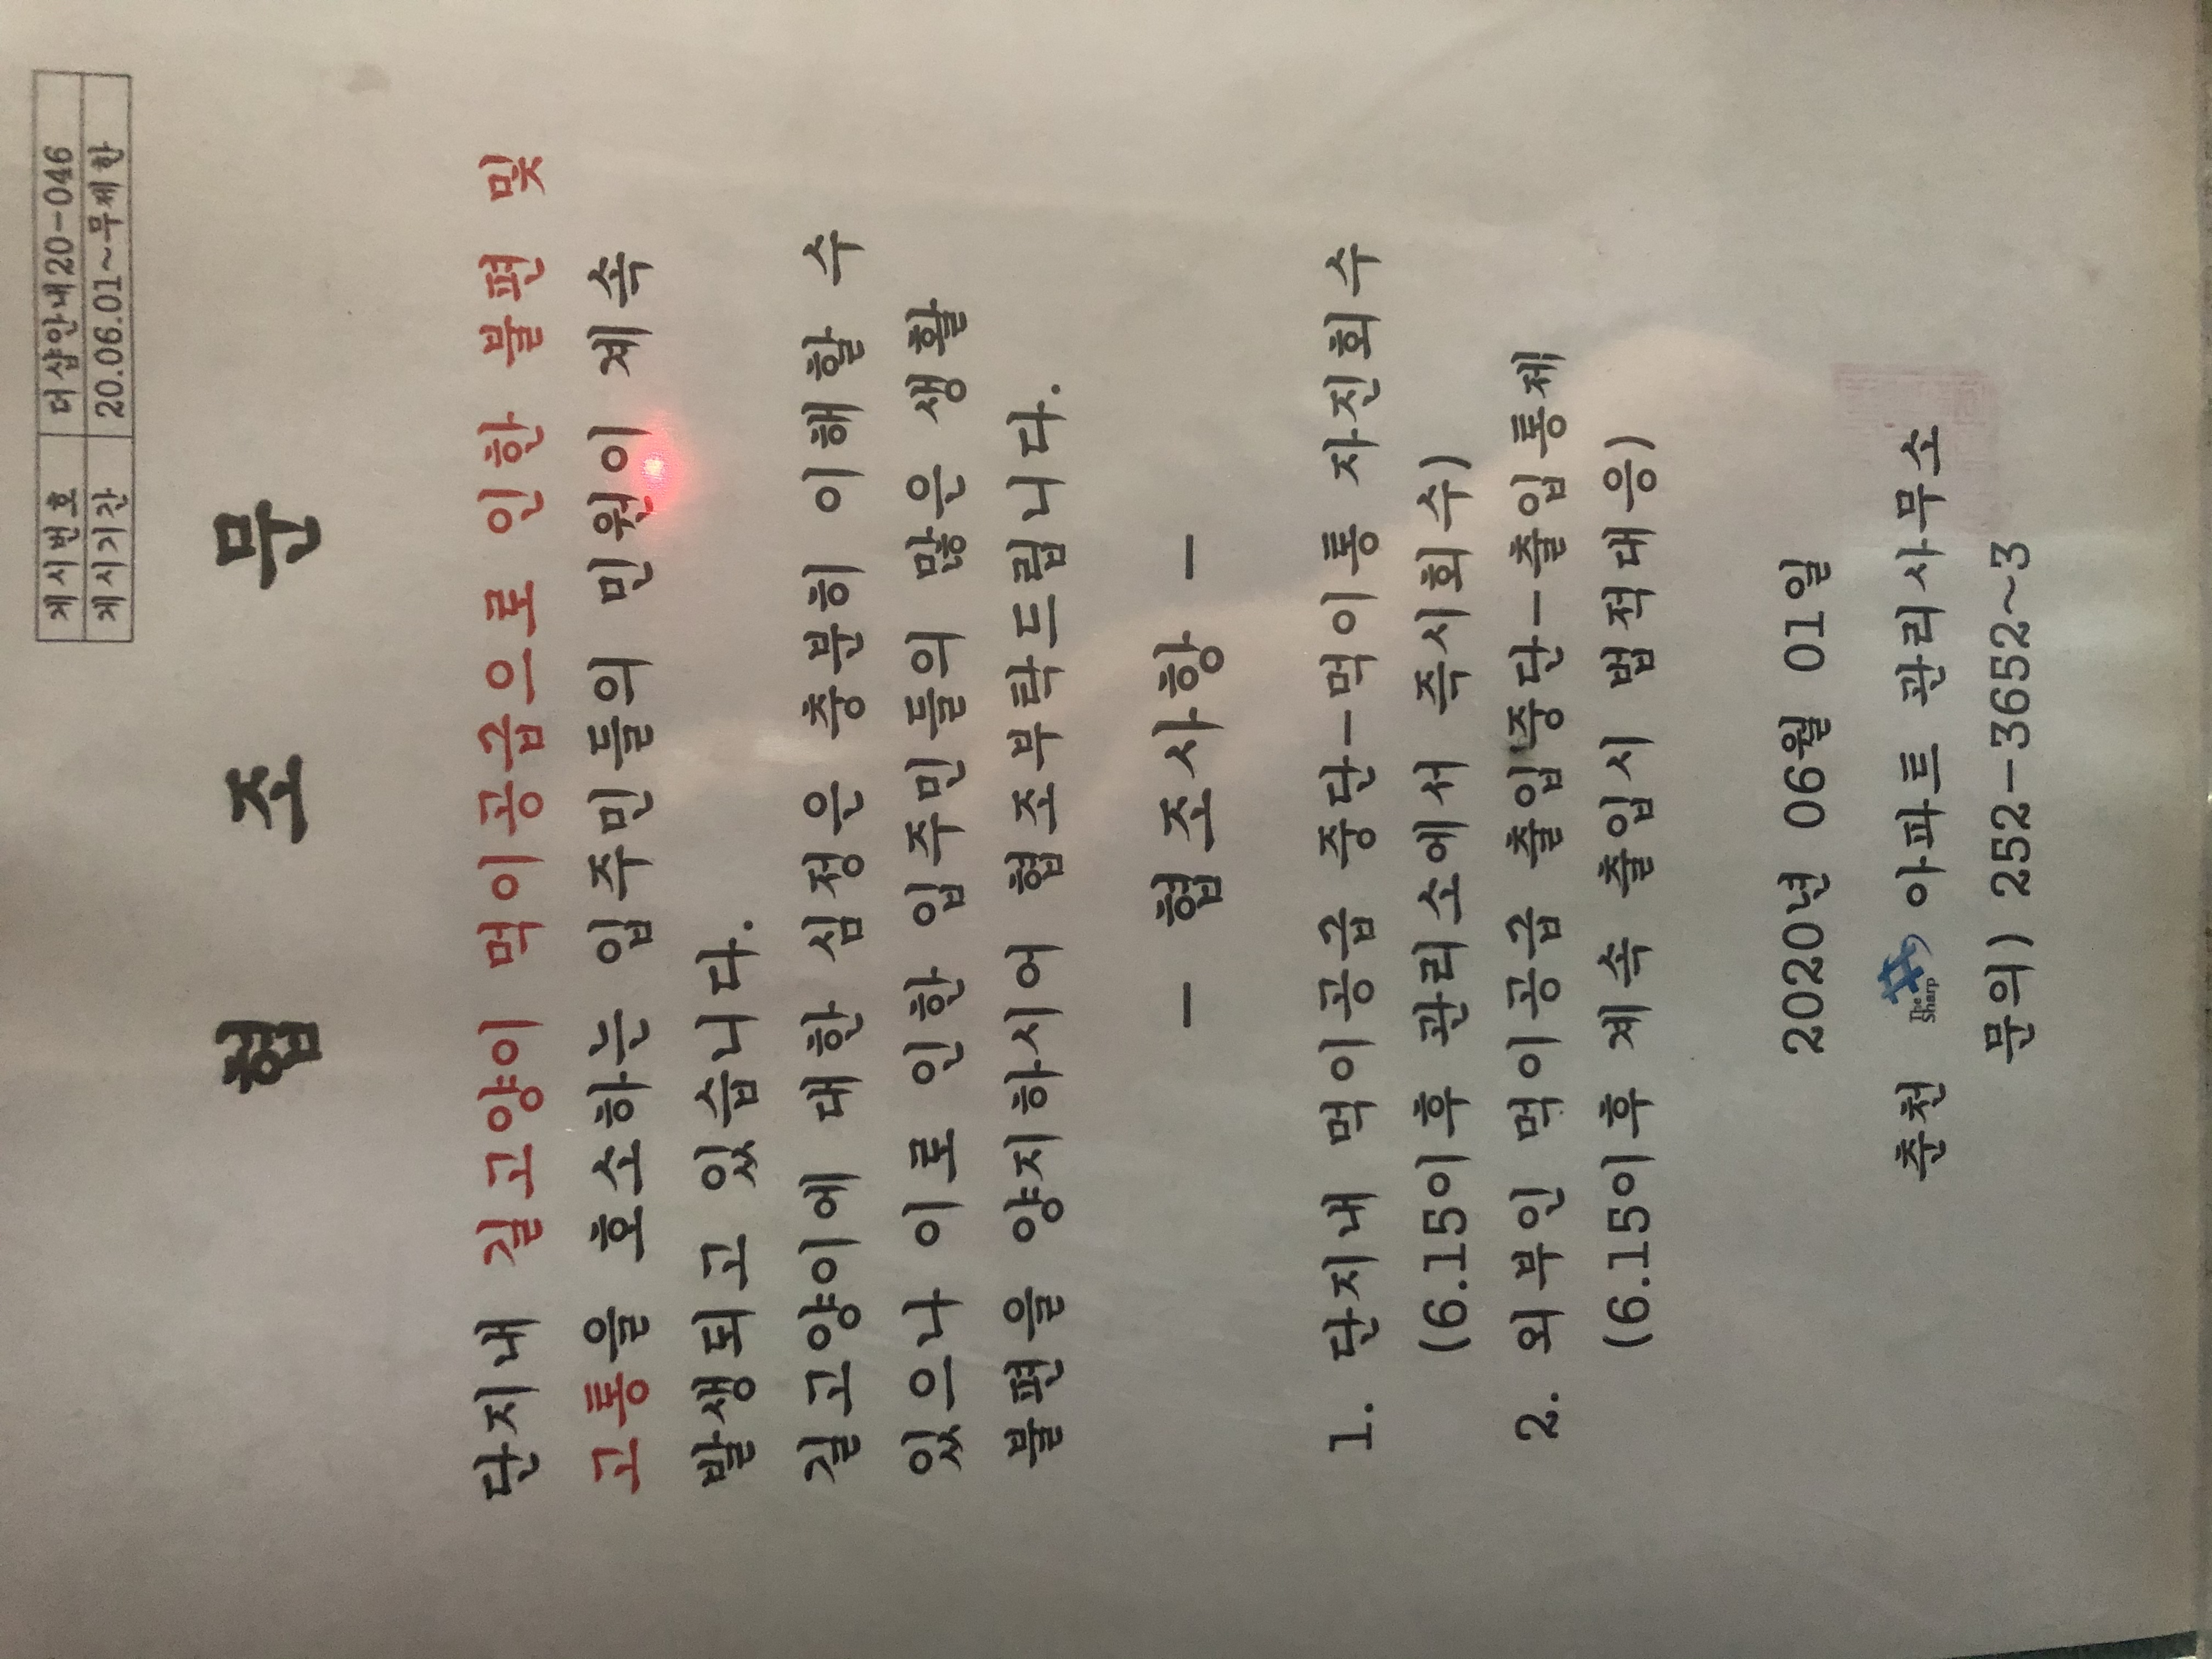 게시번호 더샵안내20-046
게시기간 20.06.01~무제한
협 조 문
단지내 길고양이 먹이공급으로 인한 불편 및
고통을 호소하는 입주민들의 민원이 계속
발생되고 있습니다.
길고양이에 대한 심정은 충분히 이해할 수
있으나 이로 인한 입주민들의 많은 생활
불편을 양지하시어 협조부탁드립니다.
- 협조사항 -
1. 단지내 먹이공급 중단-먹이통 자진회수
(6.15이후 관리소에서 즉시회수)
2. 외부인 먹이공급 출입중단-출입통제
(6.15이후 계속 출입시 법적대응)
2020년 06월 01일
춘천 The Sharp 아파트 관리사무소
문의) 252-3652~3